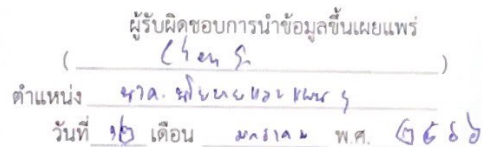 ผู้รับผิดชอบการนำข้อมูลขึ้นเผยแพร่
( )
ตำแหน่ง นโยบายและแผนฯ
วันที่ ๑๒ เดือน มกราคม พ.ศ. ๒๕๖๖